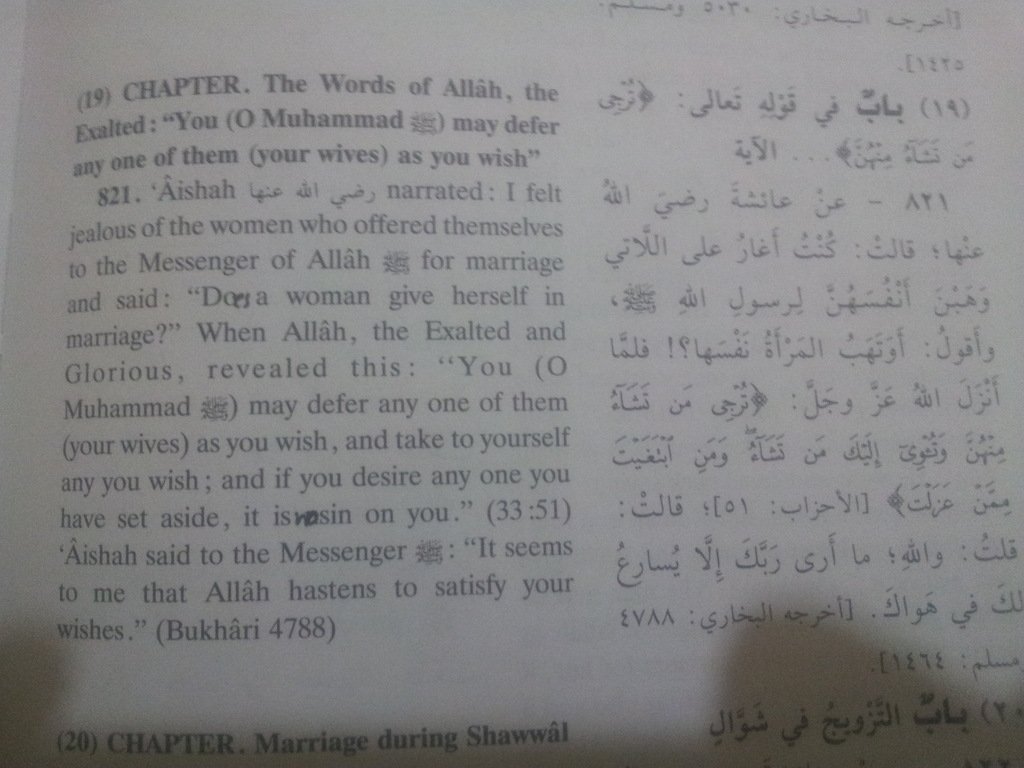 (19) CHAPTER. The Words of Allâh, the
Exalted: “You (O Muhammad ﷺ) may defer
any one of them (your wives) as you wish”
821. ‘Âishah رضي الله عنها narrated: I felt
jealous of the women who offered themselves
to the Messenger of Allâh ﷺ for marriage
and said: “Does a woman give herself in
marriage?” When Allâh, the Exalted and
Glorious, revealed this: “You (O
Muhammad ﷺ) may defer any one of them
(your wives) as you wish, and take to yourself
any you wish; and if you desire any one you
have set aside, it is no sin on you.” (33:51)
‘Âishah said to the Messenger ﷺ: “It seems
to me that Allâh hastens to satisfy your
wishes.” (Bukhâri 4788)
(20) CHAPTER. Marriage during Shawwâl
[أخرجه البخاري: ٥٠٣٠ ومسلم:
١٤٢٥].
(١٩) بابٌ في قَوْلِهِ تَعالى: ﴿تُرْجِى
مَن تَشَآءُ مِنْهُنَّ﴾... الآية
٨٢١ - عنْ عائشةَ رضيَ اللهُ
عنْها؛ قالتْ: كُنْتُ أَغارُ على اللَّاتي
وَهَبْنَ أَنْفُسَهُنَّ لِرسولِ اللهِ ﷺ،
وأَقولُ: أَوَتَهَبُ المَرْأَةُ نَفْسَها؟! فلمَّا
أَنْزَلَ اللهُ عَزَّ وجَلَّ: ﴿تُرْجِى مَن تَشَآءُ
مِنْهُنَّ وَتُـْٔوِىٓ إِلَيْكَ مَن تَشَآءُ ۖ وَمَنِ ٱبْتَغَيْتَ
مِمَّنْ عَزَلْتَ﴾ [الأحزاب: ٥١]؛ قالتْ:
قلتُ: واللهِ؛ ما أَرى رَبَّكَ إِلَّا يُسارِعُ
لكَ في هَواكَ. [أخرجه البخاري: ٤٧٨٨
ومسلم: ١٤٦٤].
(٢٠) بابُ التَّزْويجُ في شَوَّالٍ